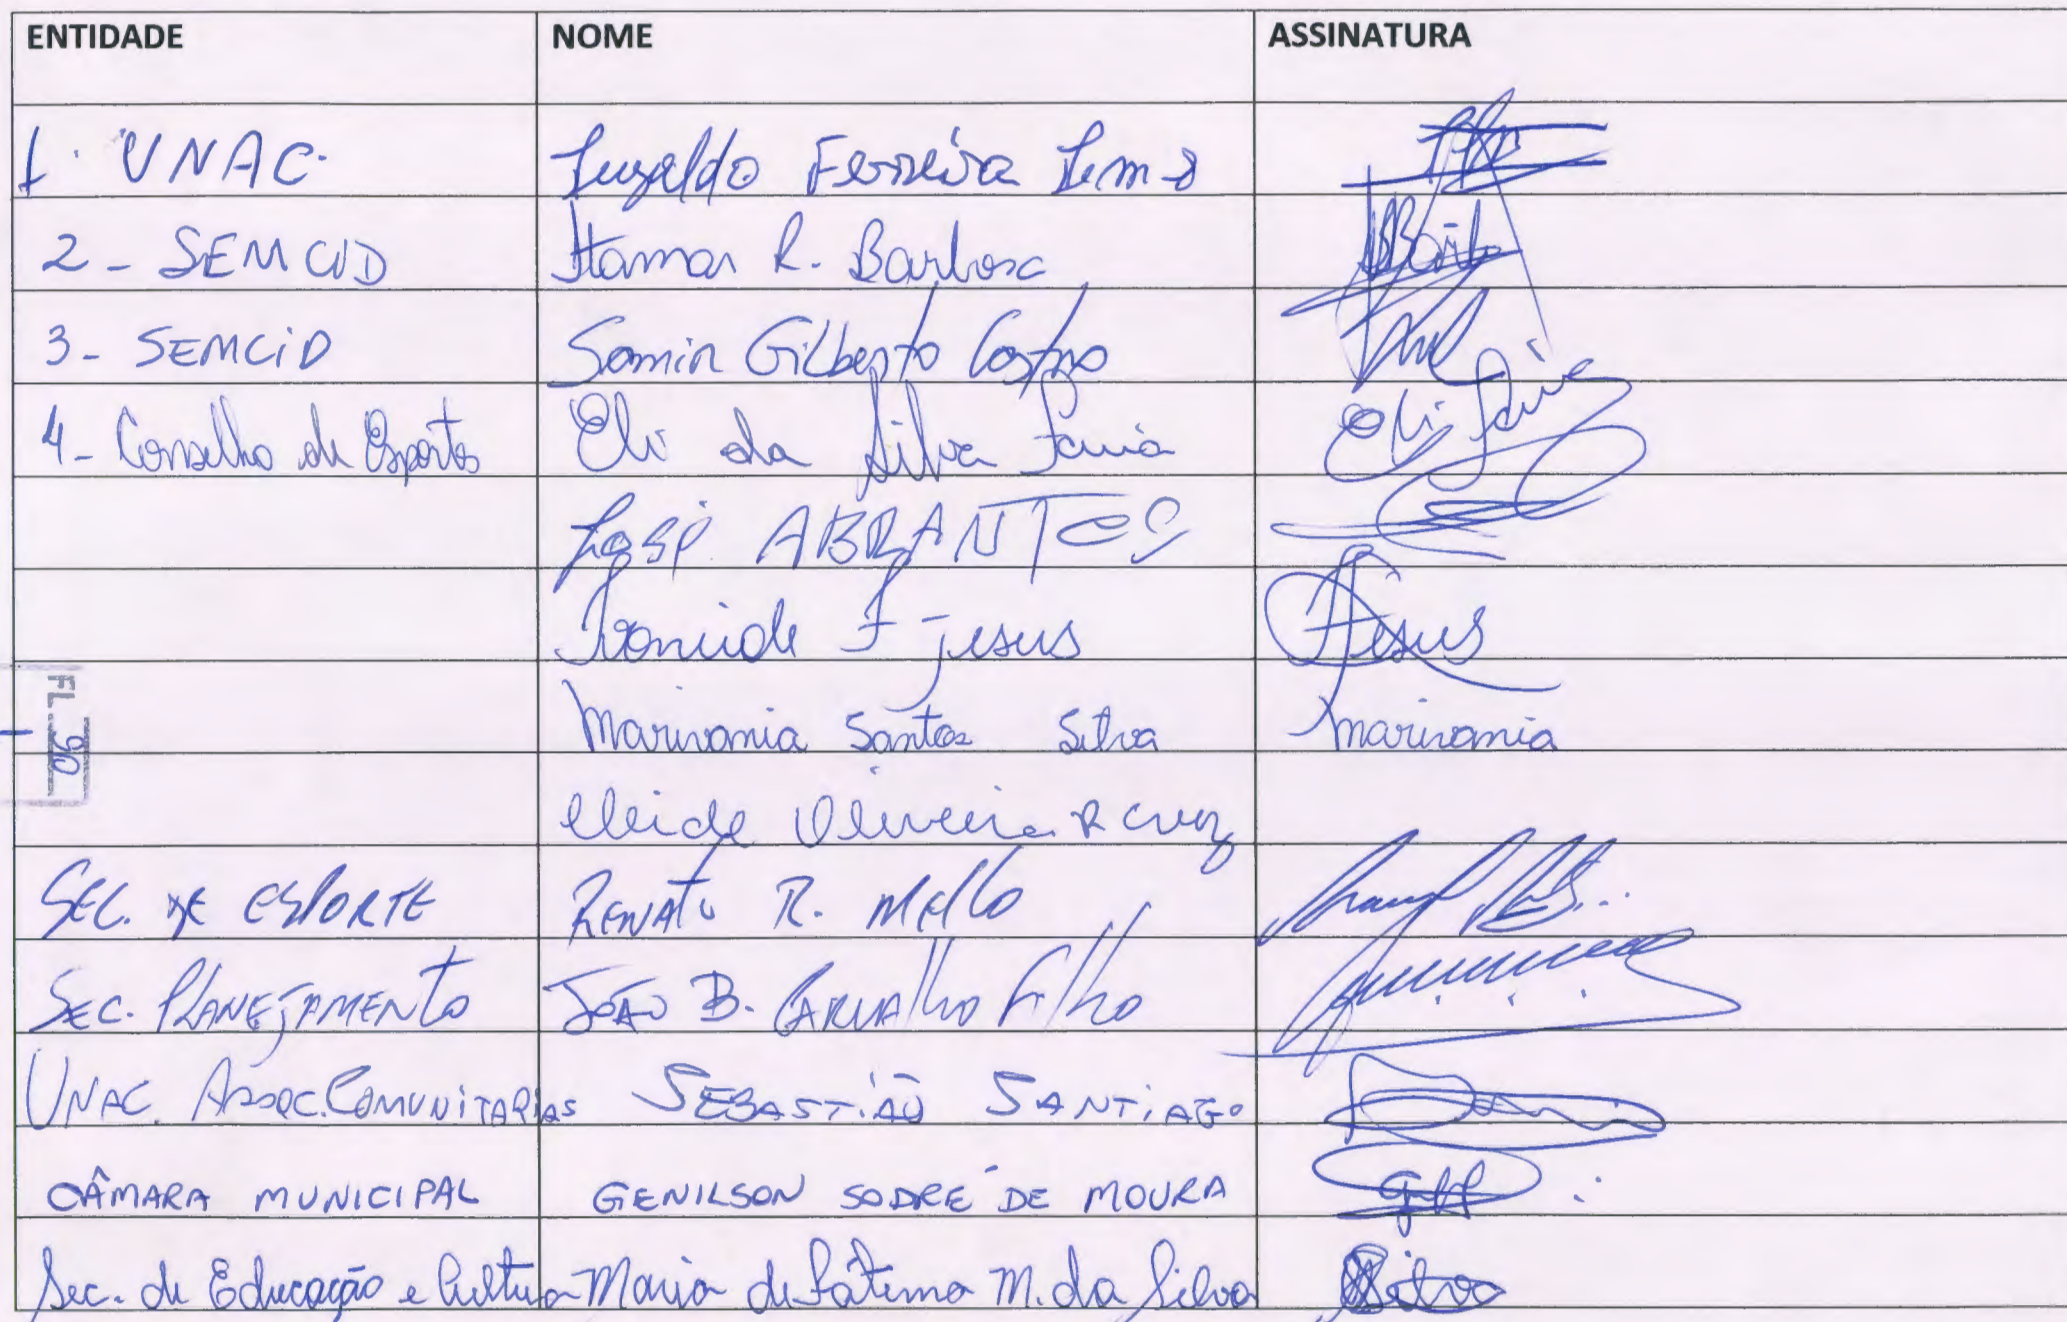 ENTIDADE NOME ASSINATURA
1. UNAC Ferreira
2 - SEMCID Itamar R. Barbosa
3 - SEMCiD Samir Gilberto Castro
4 - Conselho de Esportes Eli da Silva Faria Eli Faria
ABRANTES
F Jesus Jesus
Marivania Santos Silva Marivania
Cleide Oliveira R Cruz
SEC. DE ESPORTE RENATO R. Mello
SEC. PLANEJAMENTO JOÃO B. CARVALHO Filho
UNAC. Assoc. COMUNITARIAS SEBASTIÃO SANTIAGO
CÂMARA MUNICIPAL GENILSON SODRÉ DE MOURA
Sec. de Educação e Cultura Maria de Fátima M. da Silva Silva
FL. 90